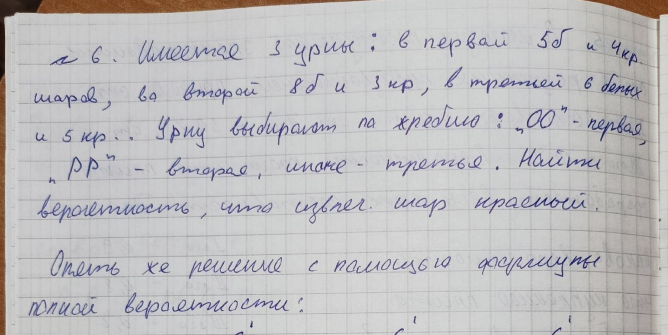 № 6. Имеется 3 урны: в первой 5б и 4кр.
шаров, во второй 8б и 3кр, в третьей 6 белых
и 5 кр.. Урну выбирают по жребию: „ОО" - первая,
„РР" - вторая, иначе - третья. Найти
вероятность, что извлеч. шар красный.
Опять же решение с помощью формулы
полной вероятности: